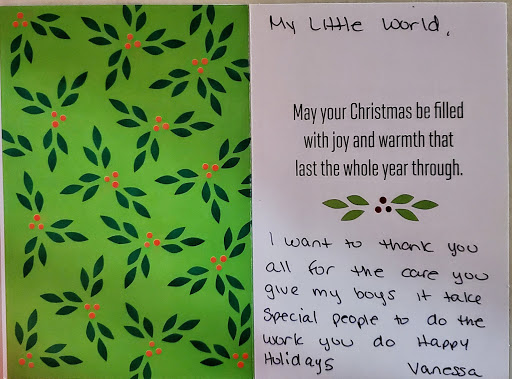 My Little World,
May your Christmas be filled
with joy and warmth that
last the whole year through.
I want to thank you
all for the care you
give my boys it take
special people to do the
work you do Happy
Holidays Vanessa